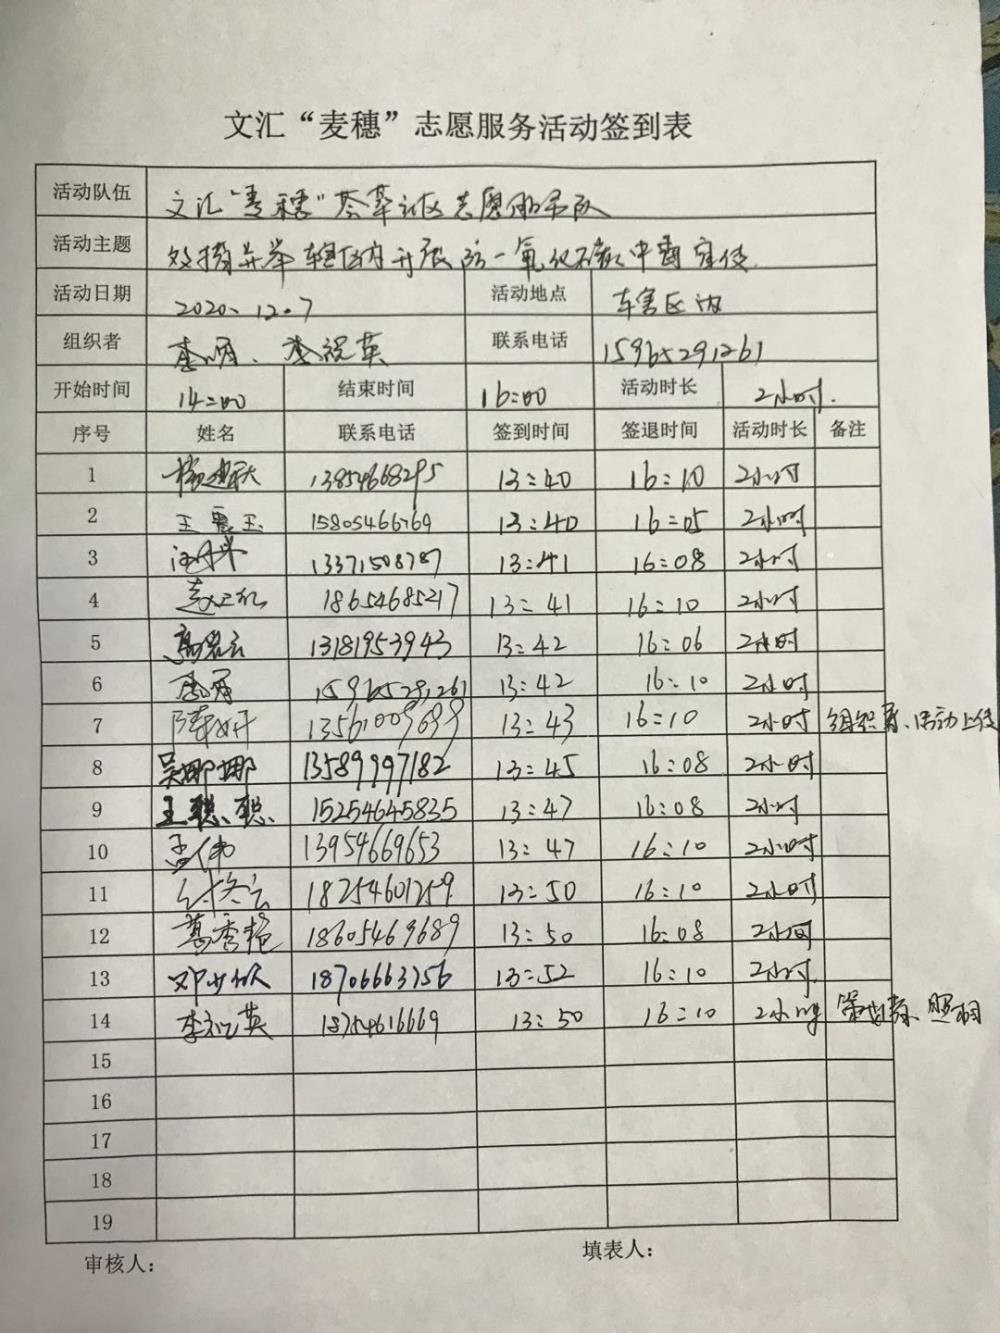 文汇“麦穗”志愿服务活动签到表
活动队伍 文汇“麦穗”荟萃社区志愿服务队
活动主题 多措并举 辖区内开展防一氧化碳中毒宣传
活动日期 2020、12.7 活动地点 辖区内
组织者 李明、李祝英 联系电话 15965291261
开始时间 14:00 结束时间 16:00 活动时长 2小时.
序号 姓名 联系电话 签到时间 签退时间 活动时长 备注
1 13854668295 13:40 16:10 2小时
2 王震玉 15805466769 13:40 16:05 2小时
3 13371508787 13:41 16:08 2小时
4 18654685217 13:41 16:10 2小时
5 13181953943 13:42 16:06 2小时
6 15965291261 13:42 16:10 2小时
7 13561009699 13:43 16:10 2小时 活动上传
8 吴娜娜 13589997182 13:45 16:08 2小时
9 王聪聪 15254645835 13:47 16:08 2小时
10 孟伟 13954669653 13:47 16:10 2小时
11 18254601259 13:50 16:10 2小时
12 葛秀艳 18605469689 13:50 16:08 2小时
13 18706663756 13:52 16:10 2小时
14 18754616669 13:50 16:10 2小时 照相
15
16
17
18
19
审核人: 填表人: